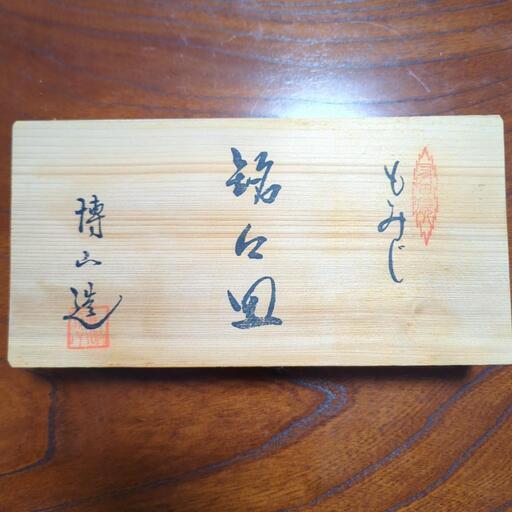 もみじ
銘々皿
博山造